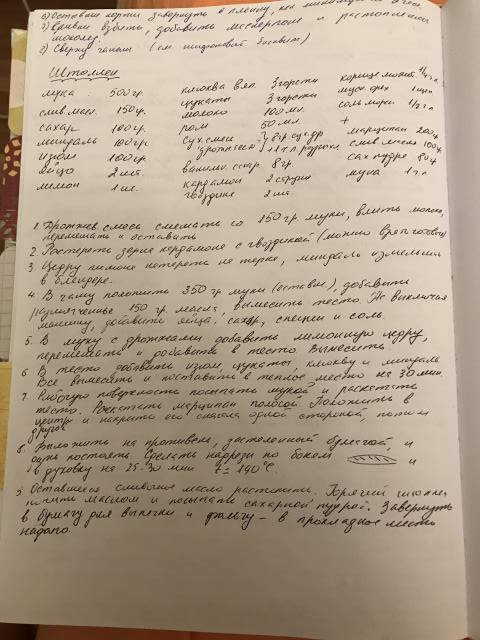 6) Оставшие коржи завернуть в пленку, как минимум на 8 часов
7) Сливки взбить, добавить маскарпоне и растопленный шоколад.
8) Сверху ганаш (см. шоколадный бисквит)
Штоллен
мука : 500гр. клюква вял. 3 горсти корица молот. 1/2 ч.л
слив. масл. 150гр. цукаты 3 горсти муск. орех 1 щеп
сахар 100гр. молоко 100 мл. соль морск 1/2 ч.л
миндаль 100гр. ром 50 мл. +
изюм 100гр. Сух. смесь дрожжей марципан 200гр
яйцо 2 шт. ванильн. сахар. 8гр. слив масло 100гр.
лимон 1 шт. кардамон 2 струч сах пудра 80гр
гвоздика 2 шт. мука 1 ч.л
1. Дрожжев. смесь смешать со 150гр. муки, влить молоко,
перемешать и оставить
2. Растереть зерна кардамона с гвоздикой (можно взять готовую)
3 Цедру лимона натереть на терке, миндаль измельчить
в блендере.
4. В чашу положить 350гр муки (оставш.), добавить
размягченные 150 гр. масла, вымесить тесто. Не выключая
машину, добавить яйца, сахар, специи и соль.
5. В муку с дрожжами добавить лимонную цедру,
перемешать и добавить в тесто. Вымесить
6 В тесто добавить изюм, цукаты, клюкву и миндаль
Все вымесить и поставить в теплое место на 30 мин.
7 Рабочую поверхность посыпать мукой и раскатать
тесто. Раскатать марципан полосой. Положить в
центр и накрыть его сначала одной стороной, потом
другой
8. Выложить на противень, застеленный бумагой, и
дать постоять. Сделать надрезы по бокам и
в духовку на 25-30 мин t=190°C.
9. Оставшееся сливочное масло растопить. Горячий штоллен
полить маслом и посыпать сахарной пудрой. Завернуть
в бумагу для выпечки и фольгу - в прохладное место
надолго.